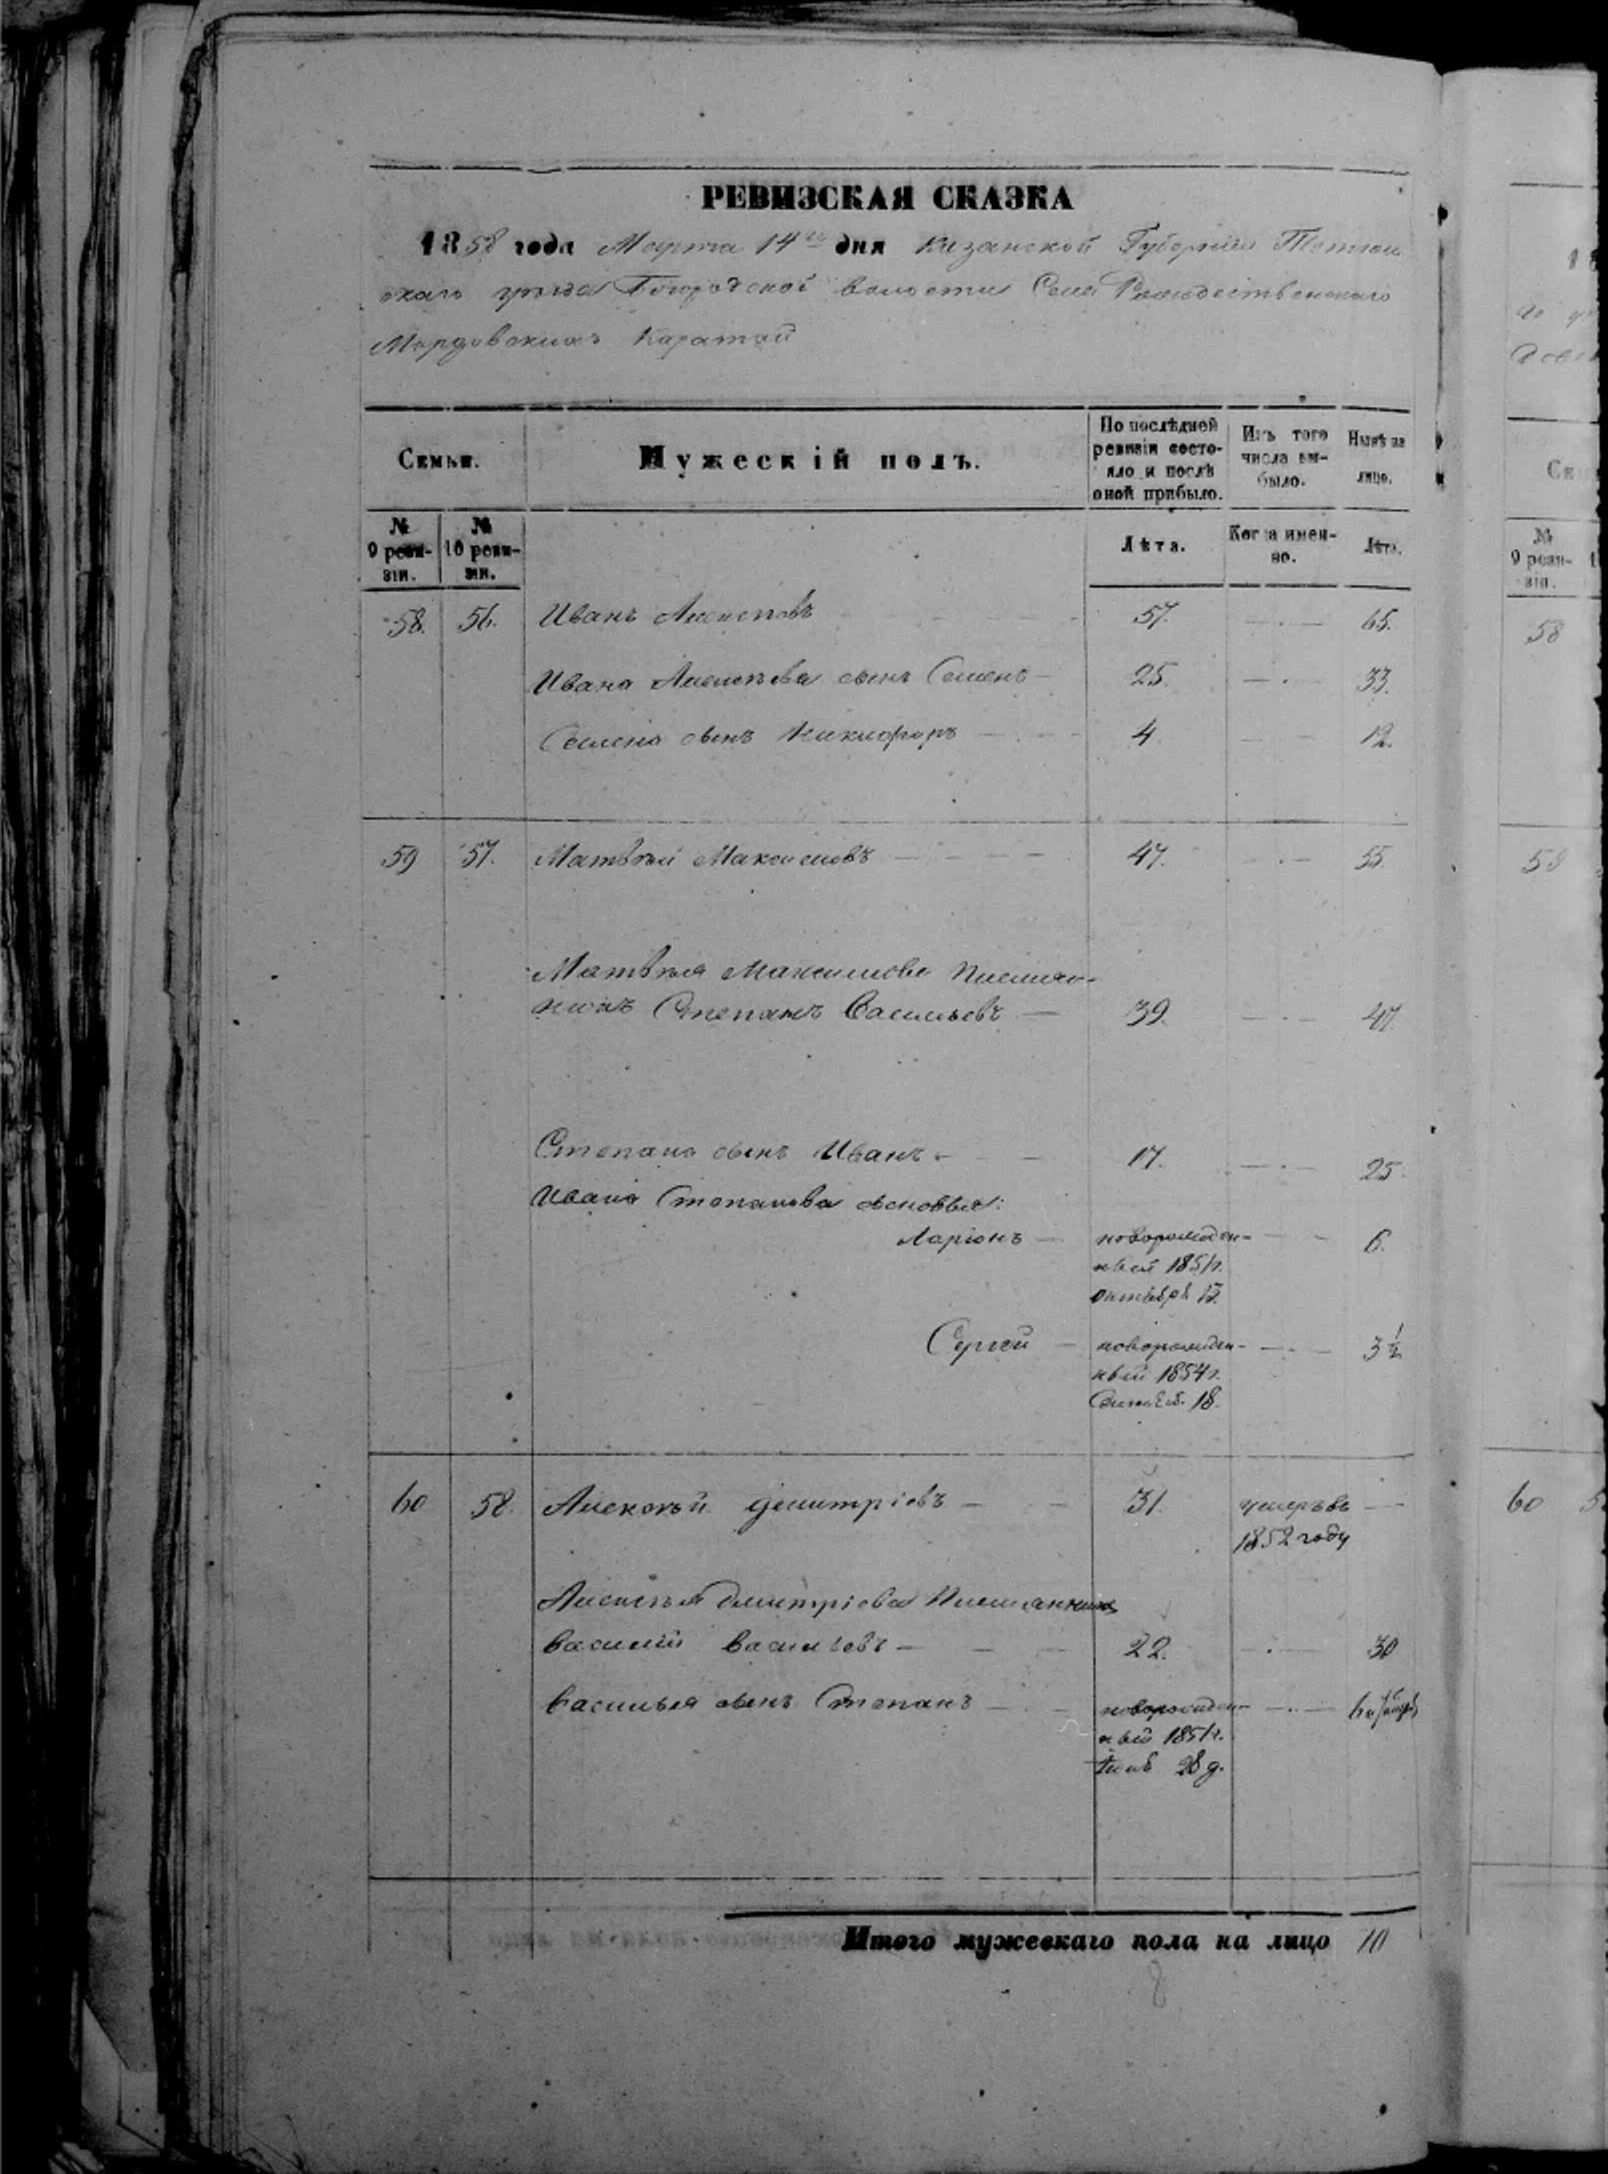 РЕВИЗСКАЯ СКАЗКА
1858 года Марта 14го дня Казанской Губернiи Тетюш
скаго уѣзда Богородской волости Села Рождественскаго
Мордовскихъ Каратай
Семьи.
Мужескiй полъ.
По послѣдней
ревизiи состо-
яло и послѣ
оной прибыло.
Изъ того
числа вы-
было.
Нынѣ на
лицо.
№
9 реви-
зiи.
№
10 реви-
зiи.
Лѣта.
Когда имен-
но.
Лѣта.
58. 56. Иванъ 57. 65.
Ивана сынъ Семенъ 25. 33.
Семена сынъ Никифоръ 4 12.
59 57. Матвѣй Максимовъ 47. 55.
Матвѣя Максимова племян-
никъ Степанъ Васильевъ 39. 47
Степана сынъ Иванъ 17. 25.
Ивана Степанова сыновья:
Ларiонъ новорожден- 6.
ный 1851 г.
октября
Сергей новорожден- 3 1/2
ный 1854 г.
Сентяб. 18.
60 58. Алексѣй Дмитрiевъ 31. умеръ въ
1852 году
Алексѣя Дмитрiева племянникъ
Василiй Васильевъ 22. 30
Василья сынъ Степанъ новорожден-
ный 1851 г.
28 д.
Итого мужескаго пола на лицо 10
8
58
59
60
№
9 реви-
зiи.